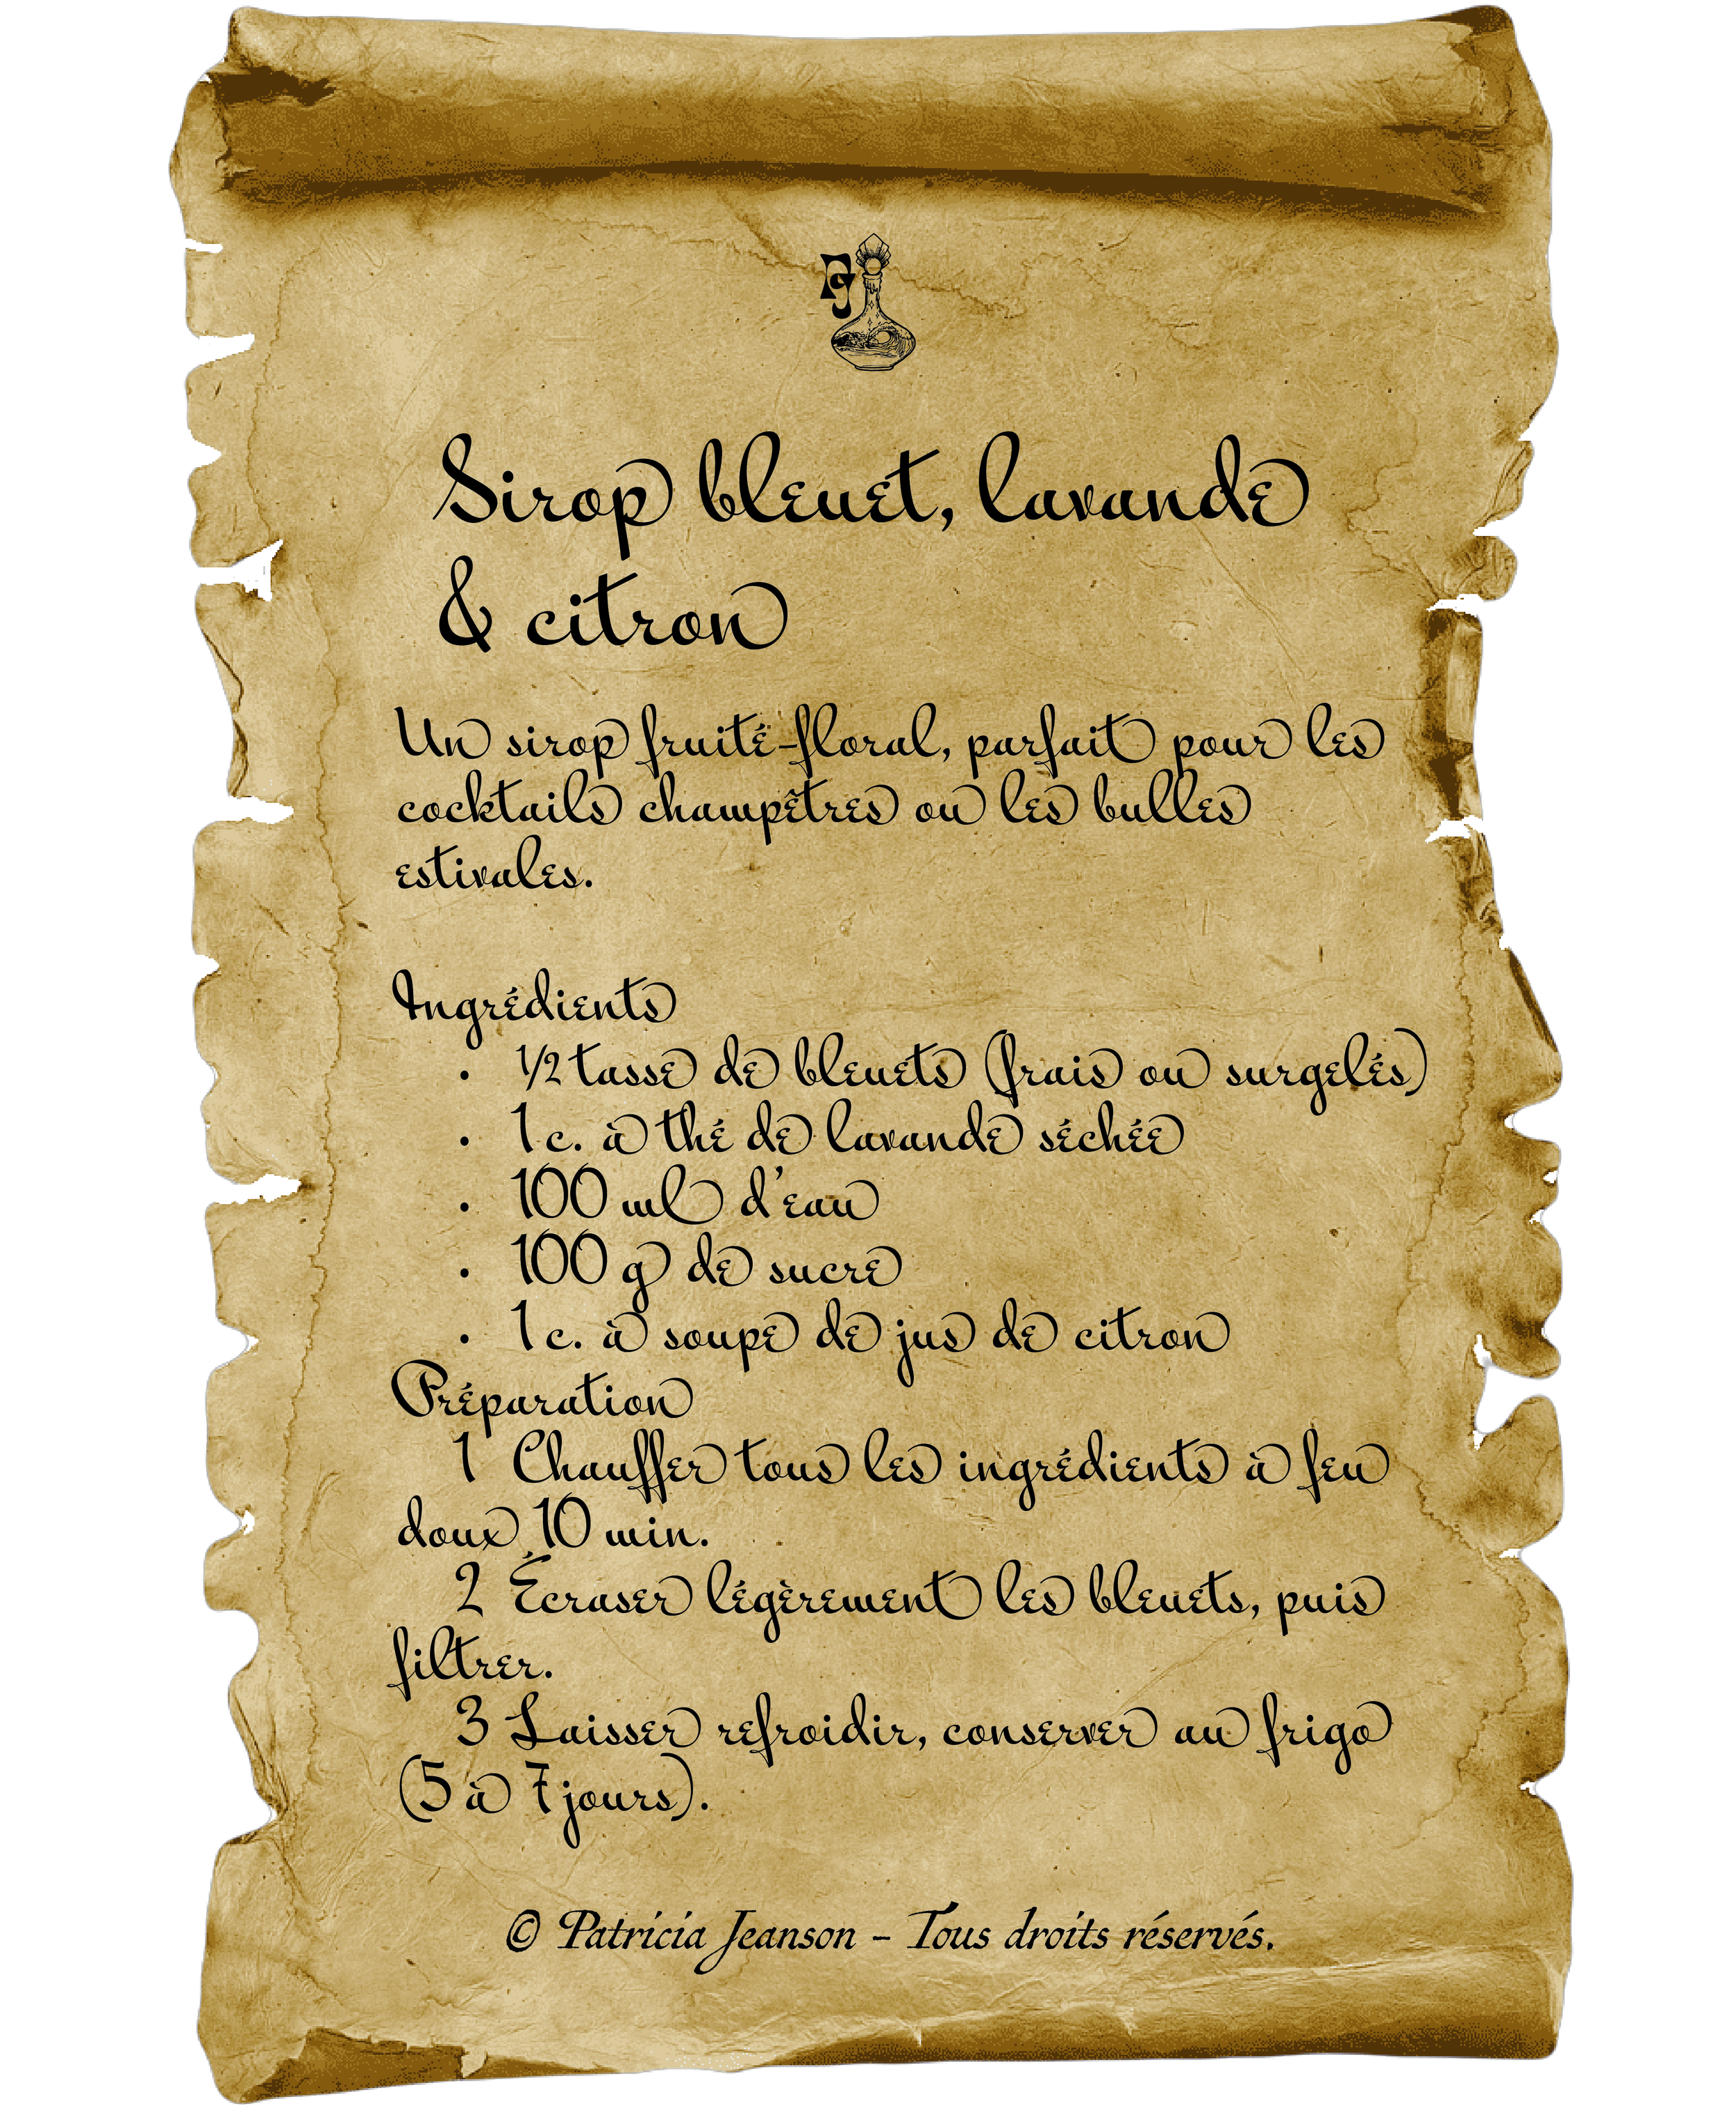 PJ
Sirop bleuet, lavande
& citron
Un sirop fruité-floral, parfait pour les
cocktails champêtres ou les bulles
estivales.
Ingrédients
• ½ tasse de bleuets (frais ou surgelés)
• 1 c. à thé de lavande séchée
• 100 ml d’eau
• 100 g de sucre
• 1 c. à soupe de jus de citron
Préparation
1 Chauffer tous les ingrédients à feu
doux 10 min.
2 Écraser légèrement les bleuets, puis
filtrer.
3 Laisser refroidir, conserver au frigo
(5 à 7 jours).
© Patricia Jeanson - Tous droits réservés.